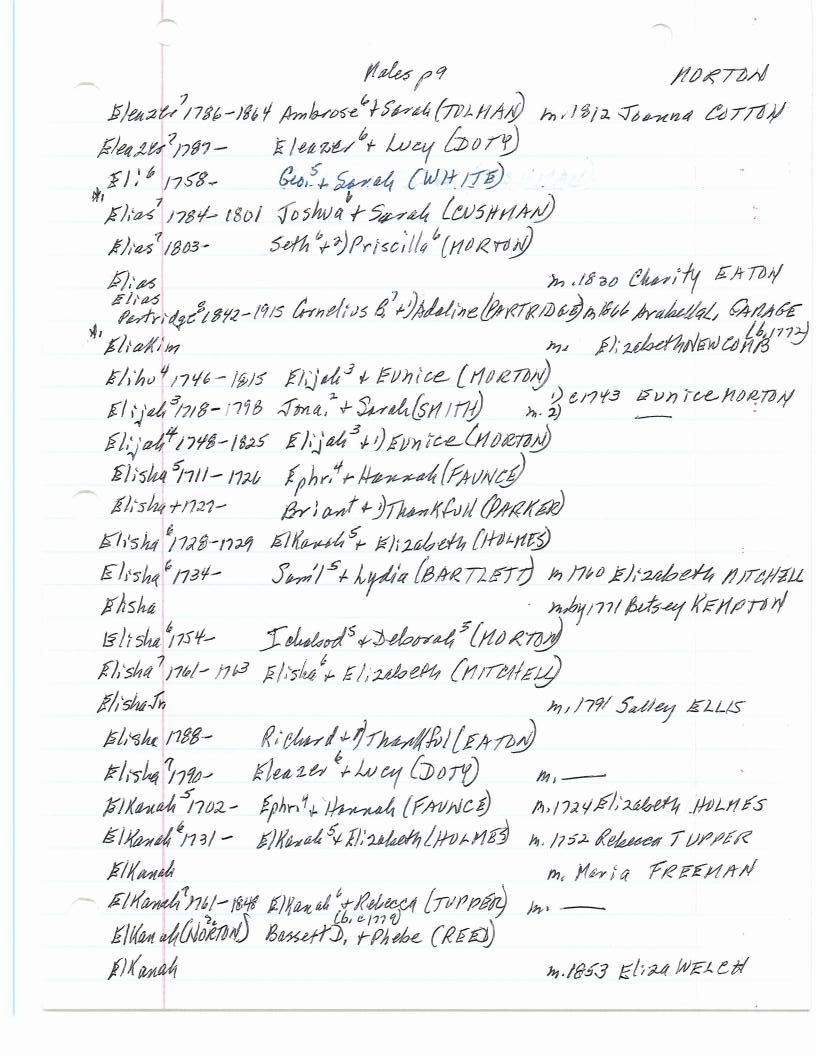 Males p9 MORTON
Eleazer⁷ 1786-1864 Ambrose⁶ + Sarah (TOLMAN) m. 1812 Joanna COTTON
Eleazer⁷ 1787- Eleazer⁶ + Lucy (DOTY)
Eli⁶ 1758- Geo.⁵ + Sarah (WHITE)
Elias⁷ 1784-1801 Joshua⁶ + Sarah (CUSHMAN)
Elias⁷ 1803- Seth⁶ + 2) Priscilla⁶ (MORTON)
Elias m. 1830 Charity EATON
Elias
Partridge⁸ 1842-1915 Cornelius B.⁷ + 1) Adaline (PARTRIDGE) m 1866 GARAGE
Eliakim m. Elizabeth NEWCOMB (b. 1772)
Elihu⁴ 1746-1815 Elijah³ + Eunice (MORTON)
Elijah³ 1718-1798 Jona.² + Sarah (SMITH) m. 1) c 1743 Eunice MORTON 2) —
Elijah⁴ 1748-1825 Elijah³ + 1) Eunice (MORTON)
Elisha⁵ 1711-1726 Ephr.⁴ + Hannah (FAUNCE)
Elisha + 1727- Briant + 1) Thankfull (PARKER)
Elisha⁶ 1728-1729 ElKanah⁵ + Elizabeth (HOLMES)
Elisha⁶ 1734- Sam'l⁵ + Lydia (BARTLETT) m 1760 Elizabeth MITCHELL
Elisha m by 1771 Betsey KEMPTON
Elisha⁶ 1754- Ichabod⁵ + Deborah⁵ (MORTON)
Elisha⁷ 1761-1763 Elisha⁶ + Elizabeth (MITCHELL)
Elisha Jr m. 1791 Salley ELLIS
Elisha 1788- Richard + 1) Thankful (EATON)
Elisha⁷ 1790- Eleazer⁶ + Lucy (DOTY) m. —
ElKanah⁵ 1702- Ephr⁴ + Hannah (FAUNCE) m. 1724 Elizabeth HOLMES
ElKanah⁶ 1731- ElKanah⁵ + Elizabeth (HOLMES) m. 1752 Rebecca TUPPER
ElKanah m. Maria FREEMAN
ElKanah⁷ 1761-1848 ElKanah⁶ + Rebecca (TUPPER) m. —
ElKanah (NORTON) Bassett D. (b. c 1779) + Phebe (REED)
ElKanah m. 1853 Eliza WELCH